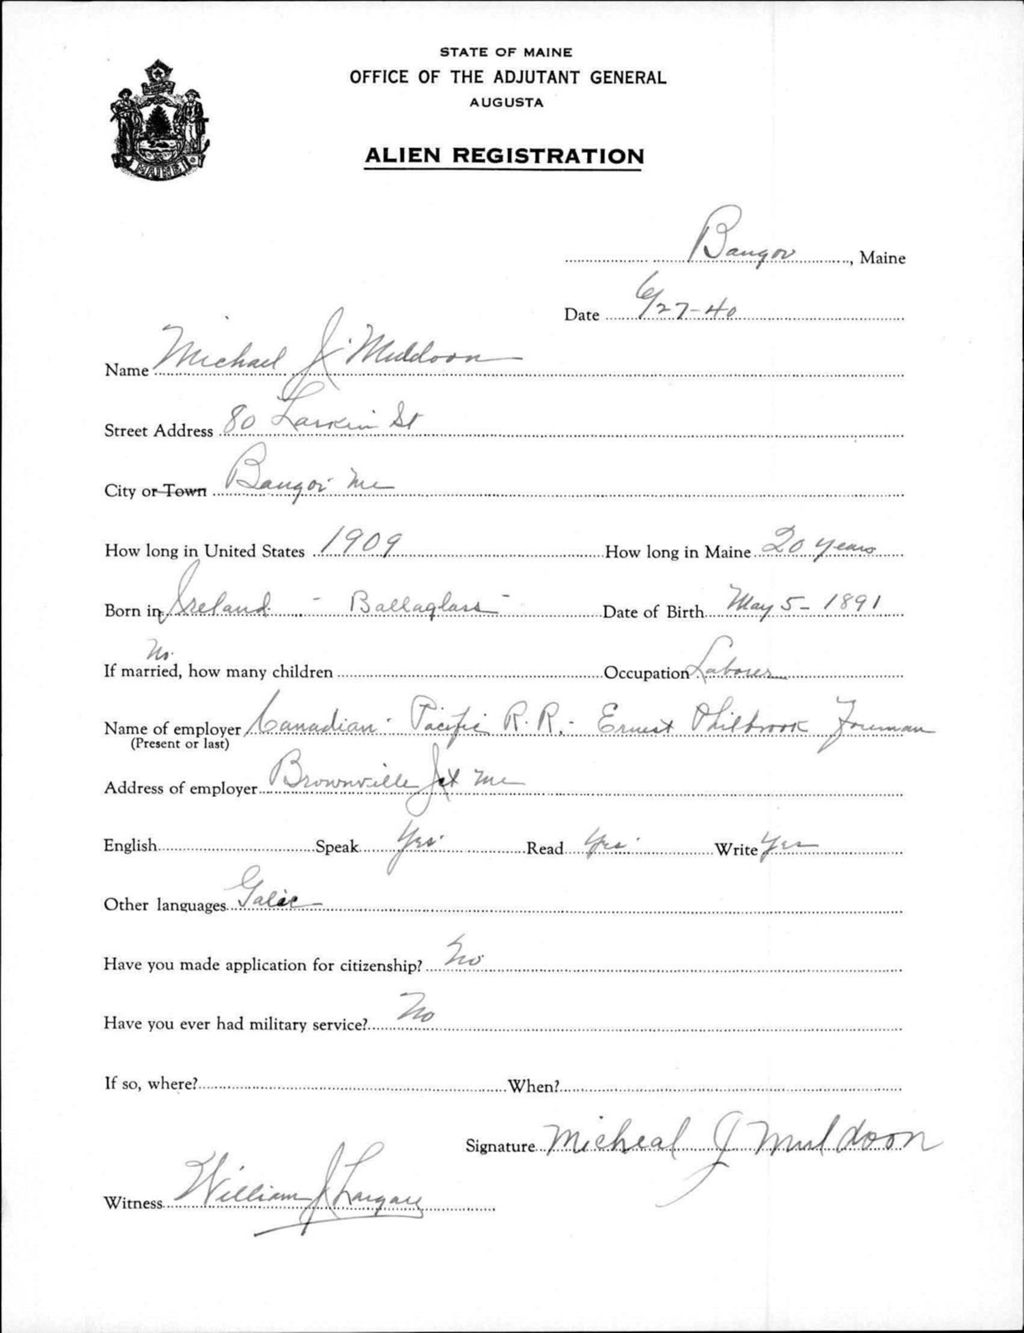 STATE OF MAINE
OFFICE OF THE ADJUTANT GENERAL
AUGUSTA
ALIEN REGISTRATION
MAINE
Bangor, Maine
Date 6/27-40
Name Michael J. Muldoon
Street Address 80 Larkin St
City or Town Bangor Me
How long in United States 1909 How long in Maine 20 years
Born in Ireland - Ballaglass - Date of Birth May 5 - 1891
No.
If married, how many children Occupation Laborer
Name of employer Canadian Pacific R.R. - Ernest Philbrook Foreman
(Present or last)
Address of employer Brownville Jct Me
English Speak Yes Read Yes Write Yes
Other languages Galic
Have you made application for citizenship? No
Have you ever had military service? No
If so, where? When?
Signature Micheal J Muldoon
Witness William J